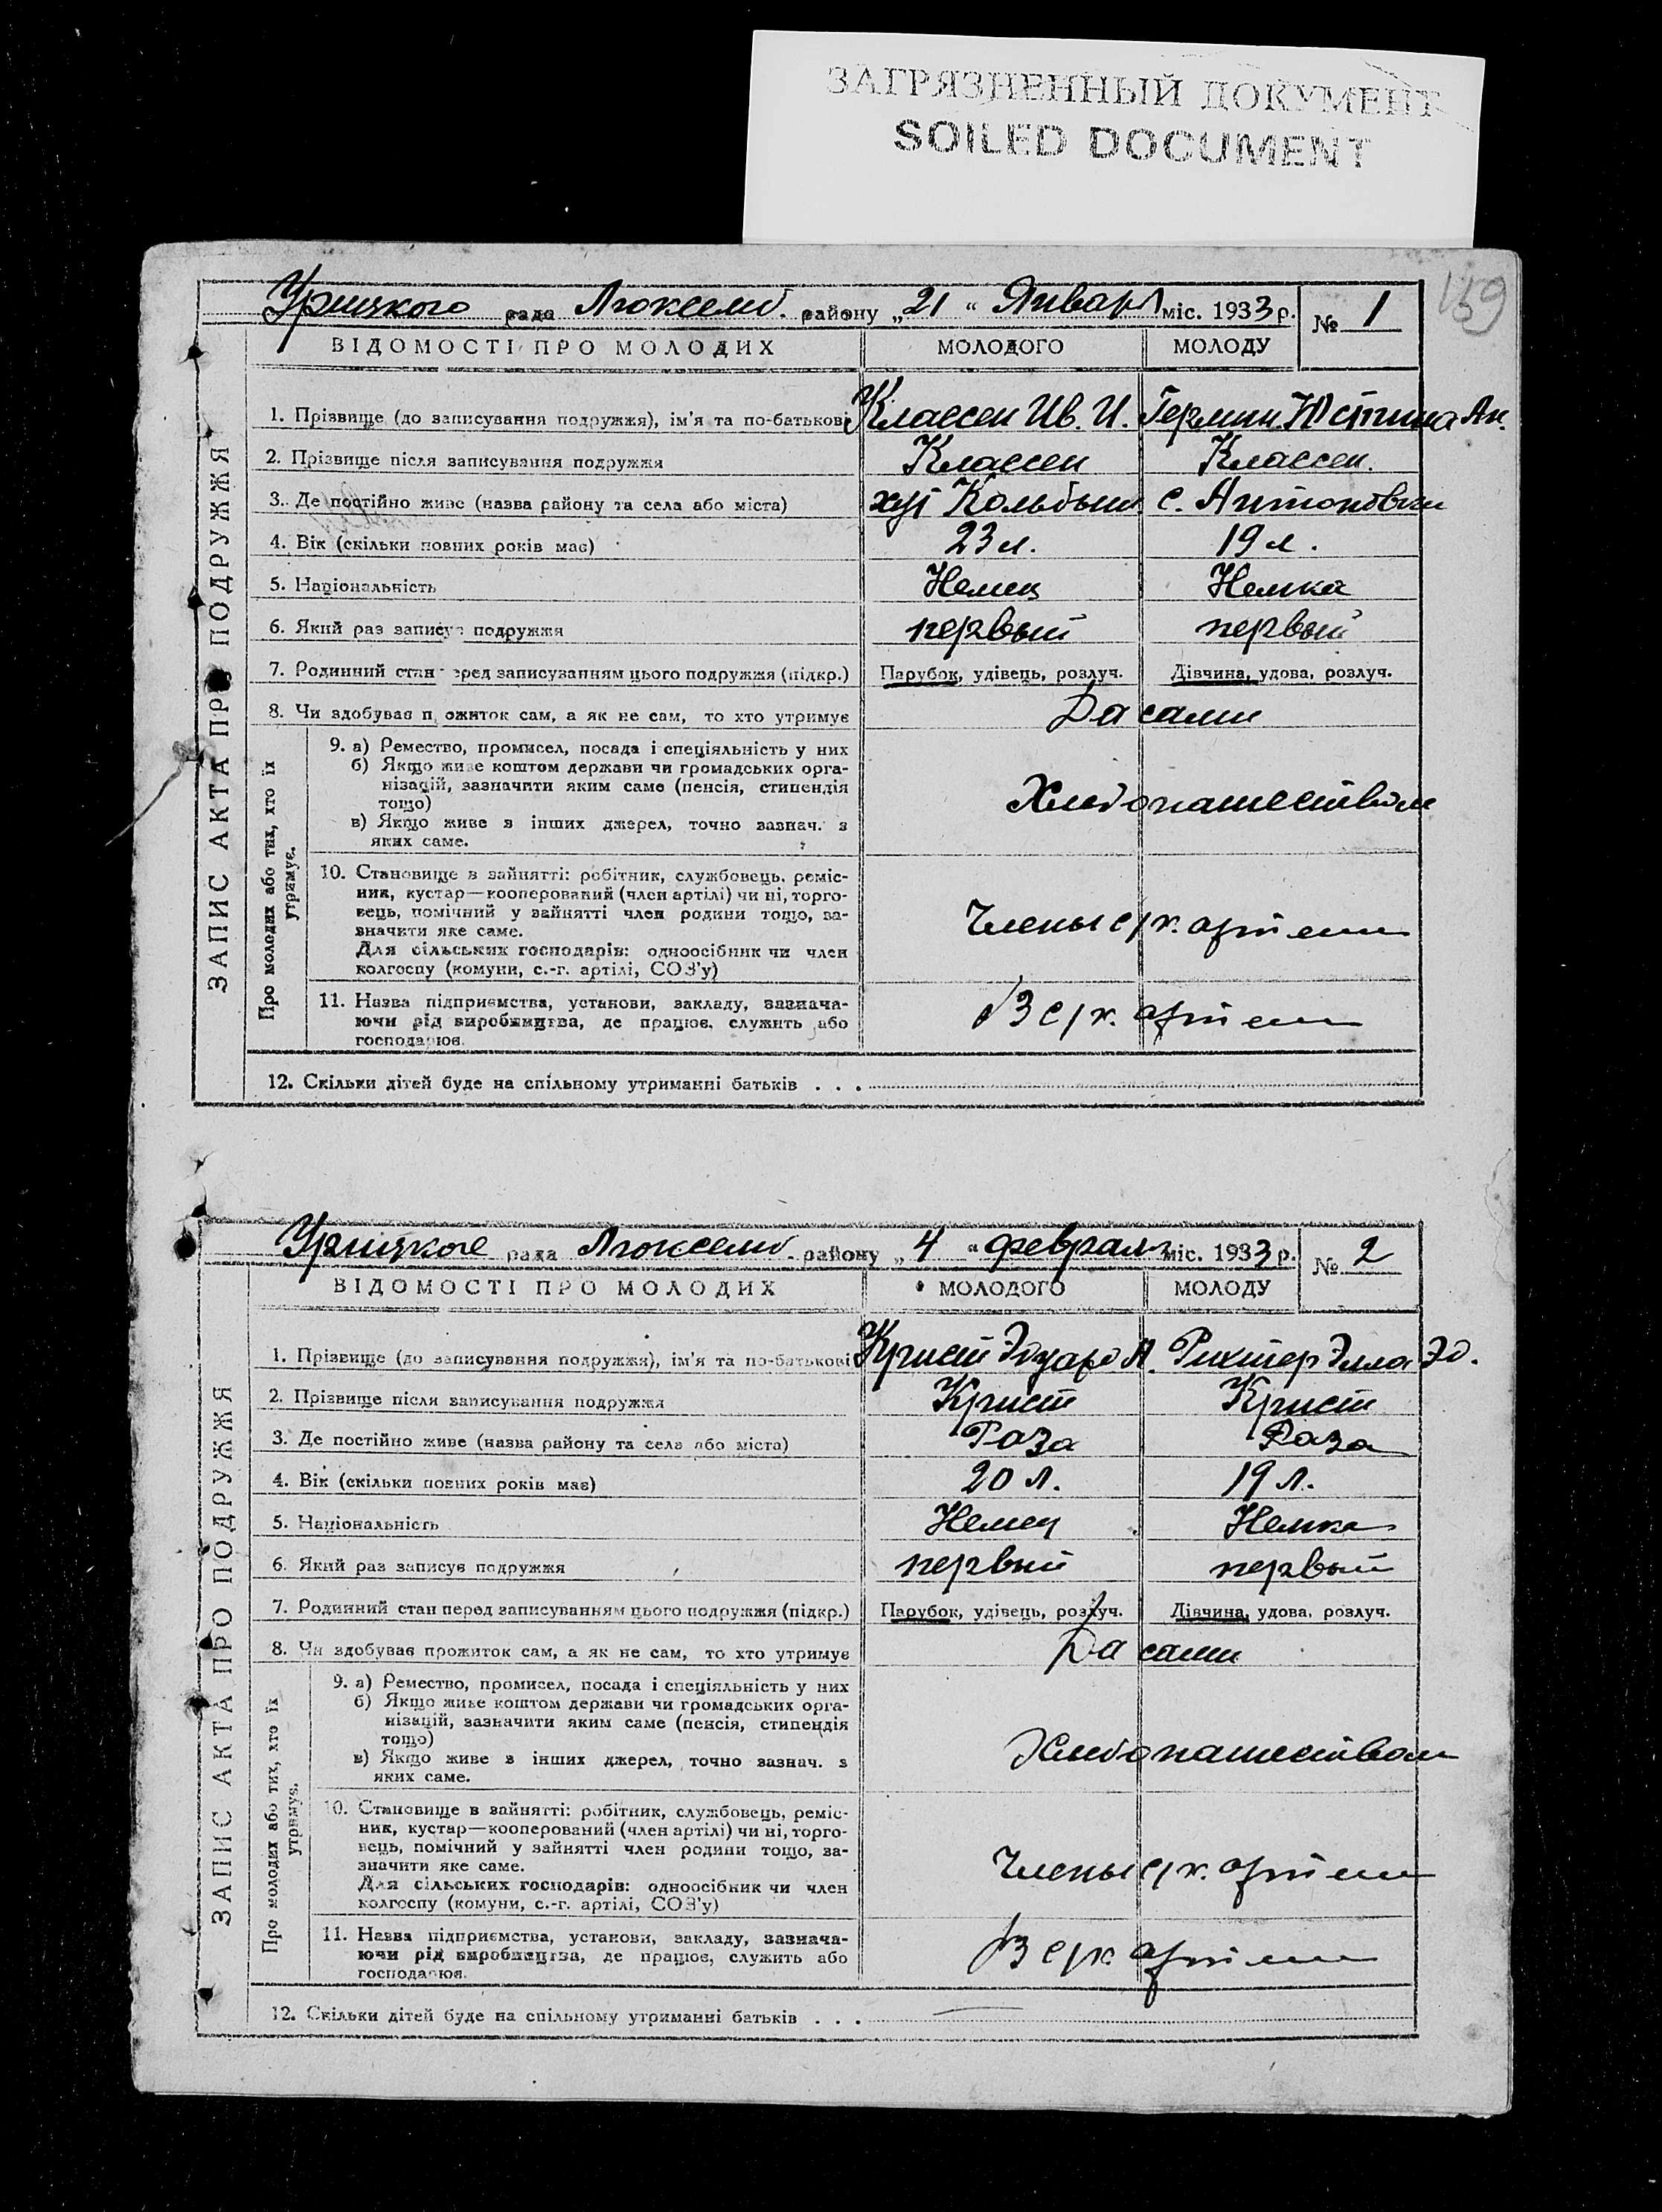 ЗАГРЯЗНЕННЫЙ ДОКУМЕНТ
SOILED DOCUMENT
159
Урицкого рада Люксемб. району „21“ Января міс. 1933 р. № 1
ВІДОМОСТІ ПРО МОЛОДИХ МОЛОДОГО МОЛОДУ
ЗАПИС АКТА ПРО ПОДРУЖЖЯ
1. Прізвище (до записування подружжя), ім'я та по-батькові Классен Ив. И. Юстина Ан.
2. Прізвище після записування подружжя Классен Классен.
3. Де постійно живе (назва району та села або міста) хут с. Антоновки
4. Вік (скільки повних років має) 23 л. 19 л.
5. Національність Немец Немка
6. Який раз записує подружжя первый первый
7. Родинний стан перед записуванням цього подружжя (підкр.) Парубок, удівець, розлуч. Дівчина, удова, розлуч.
8. Чи здобував прожиток сам, а як не сам, то хто утримує Да сами
Про молодих або тих, хто їх утримує.
9. а) Ремество, промисел, посада і спеціяльність у них
б) Якщо живе коштом держави чи громадських орга-
нізацій, зазначити яким саме (пенсія, стипендія
тощо)
в) Якщо живе з інших джерел, точно зазнач. з
яких саме.
Хлебопашеством
10. Становище в зайнятті: робітник, службовець, реміс-
ник, кустар—кооперований (член артілі) чи ні, торго-
вець, помічний у зайнятті член родини тощо, за-
значити яке саме.
Для сільських господарів: одноосібник чи член
колгоспу (комуни, с.-г. артілі, СОЗ'у)
Члены с/х. артели
11. Назва підприємства, установи, закладу, зазнача-
ючи рід виробництва, де працює, служить або
господарює.
В с/х. артели
12. Скільки дітей буде на спільному утриманні батьків . . .
Урицкое рада Люксемб. району „4“ февраля міс. 1933 р. № 2
ВІДОМОСТІ ПРО МОЛОДИХ МОЛОДОГО МОЛОДУ
ЗАПИС АКТА ПРО ПОДРУЖЖЯ
1. Прізвище (до записування подружжя), ім'я та по-батькові Крист Эдуард А. Рихтер Элла Эд.
2. Прізвище після записування подружжя Крист Крист
3. Де постійно живе (назва району та села або міста) Роза Роза
4. Вік (скільки повних років має) 20 л. 19 л.
5. Національність Немец Немка
6. Який раз записує подружжя первый первый
7. Родинний стан перед записуванням цього подружжя (підкр.) Парубок, удівець, розлуч. Дівчина, удова, розлуч.
8. Чи здобував прожиток сам, а як не сам, то хто утримує Да сами
Про молодих або тих, хто їх утримує.
9. а) Ремество, промисел, посада і спеціяльність у них
б) Якщо живе коштом держави чи громадських орга-
нізацій, зазначити яким саме (пенсія, стипендія
тощо)
в) Якщо живе з інших джерел, точно зазнач. з
яких саме.
Хлебопашеством
10. Становище в зайнятті: робітник, службовець, реміс-
ник, кустар—кооперований (член артілі) чи ні, торго-
вець, помічний у зайнятті член родини тощо, за-
значити яке саме.
Для сільських господарів: одноосібник чи член
колгоспу (комуни, с.-г. артілі, СОЗ'у)
Члены с/х. артели
11. Назва підприємства, установи, закладу, зазнача-
ючи рід виробництва, де працює, служить або
господарює.
В с/х артели
12. Скільки дітей буде на спільному утриманні батьків . . .